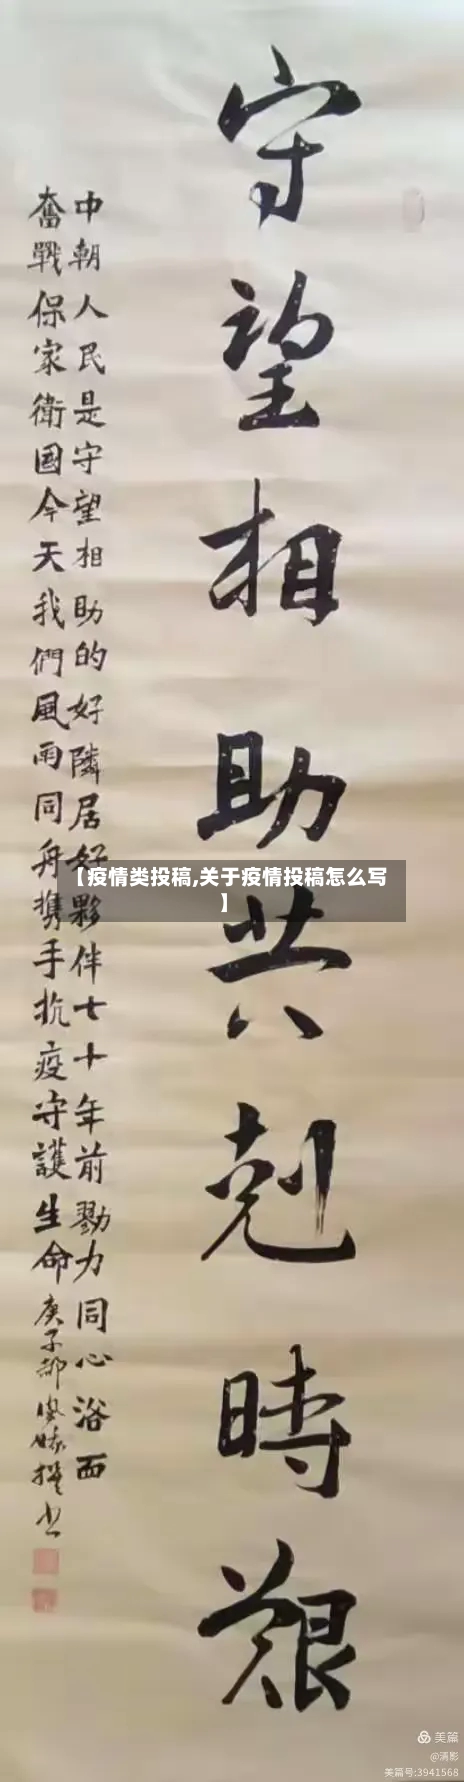 守望相助共剋時艱
中朝人民是守望相助的好隣居好夥伴七十年前勠力同心浴血
奮戰保家衛國今天我們風雨同舟携手抗疫守護生命
庚子
書
【疫情类投稿,关于疫情投稿怎么写
】
美篇
@清影
美篇号:3941568